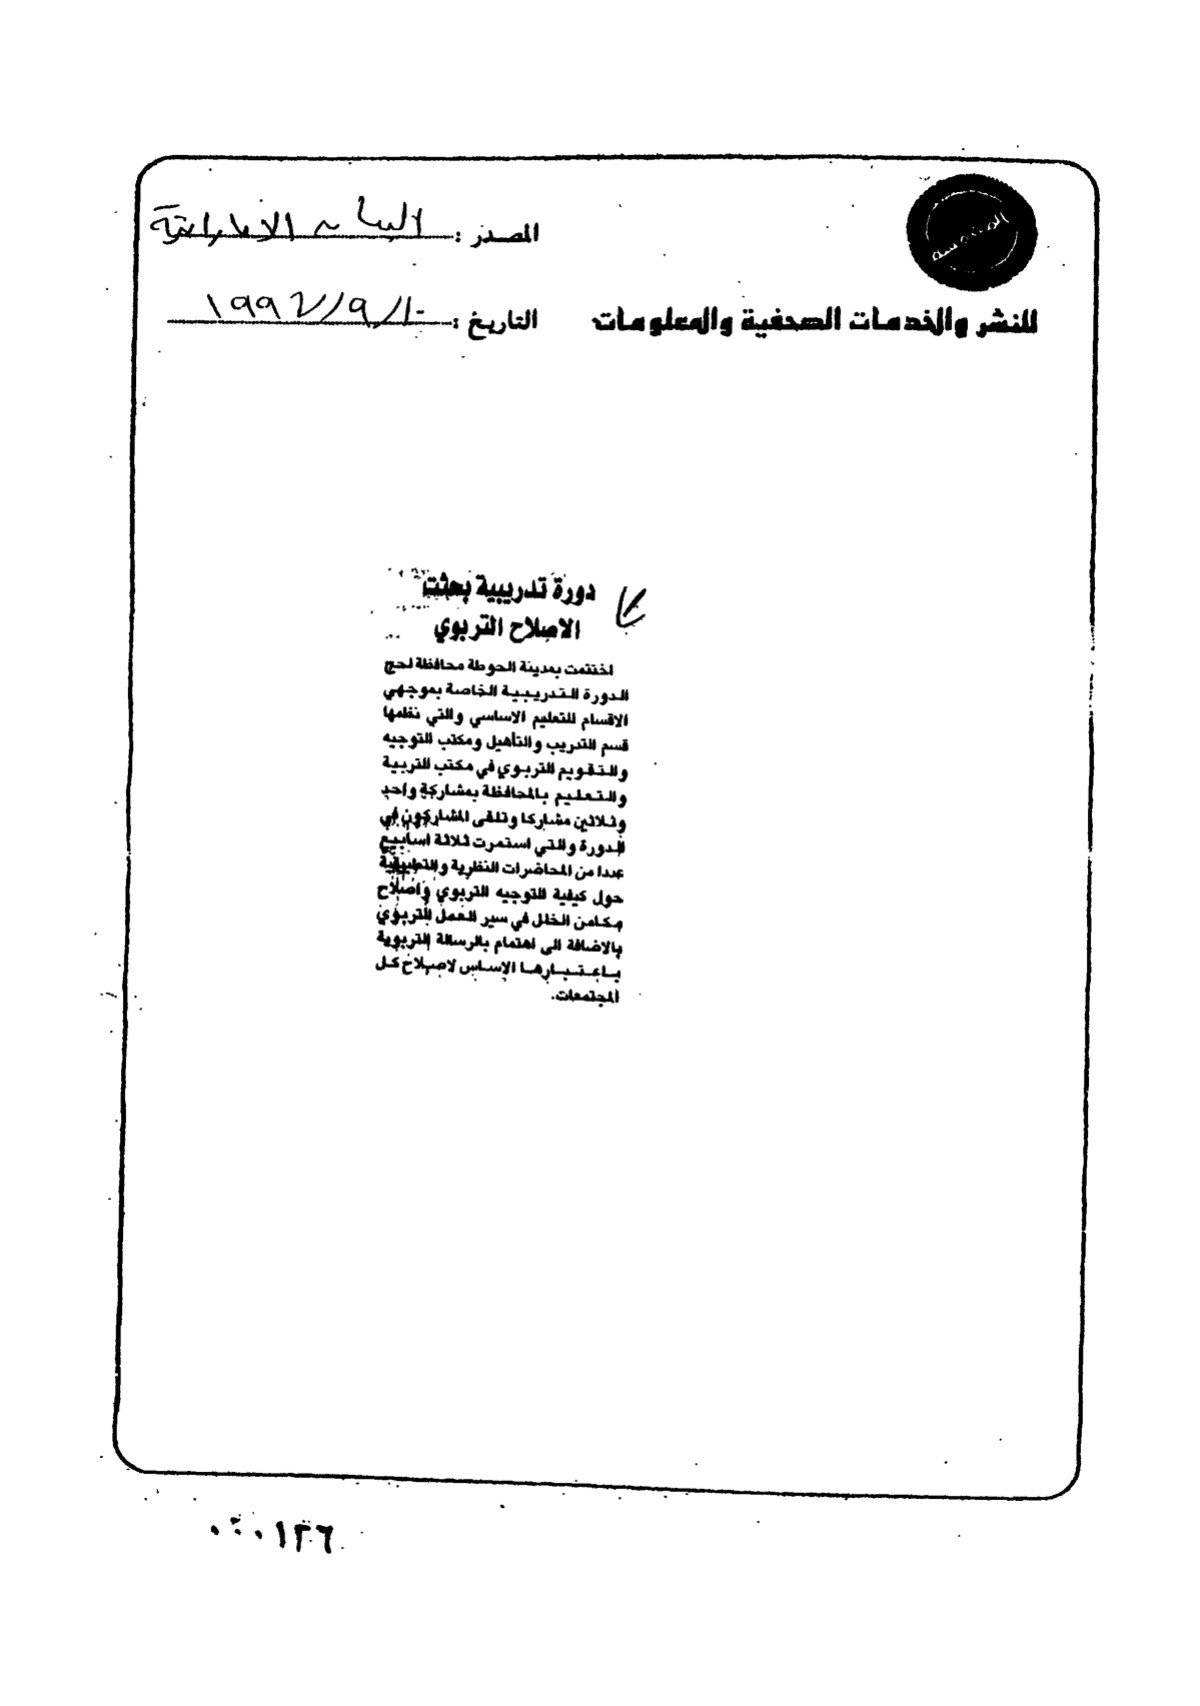 المصدر : البيان الاماراتية
للنشر والخدمات الصحفية والمعلومات
التاريخ : ١٩٩٢/٩/١٠
دورة تدريبية بحثت
الاصلاح التربوي
اختتمت بمدينة الحوطة محافظة لحج
الدورة التدريبية الخاصة بموجهي
الاقسام للتعليم الاساسي والتي نظمها
قسم التدريب والتأهيل ومكتب التوجيه
والتقويم التربوي في مكتب التربية
والتعليم بالمحافظة بمشاركة واحد
وثلاثين مشاركا وتلقى المشاركون في
الدورة والتي استمرت ثلاثة اسابيع
عددا من المحاضرات النظرية والتطبيقية
حول كيفية التوجيه التربوي واصلاح
مكامن الخلل في سير العمل التربوي
بالاضافة الى اهتمام بالرسالة التربوية
باعتبارها الاساس لاصلاح كل
المجتمعات.